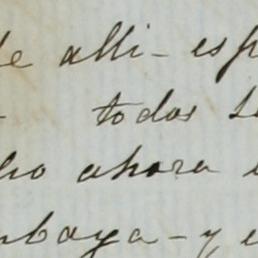 de alli - esp
- todos s
ho ahora
mbaya - y e